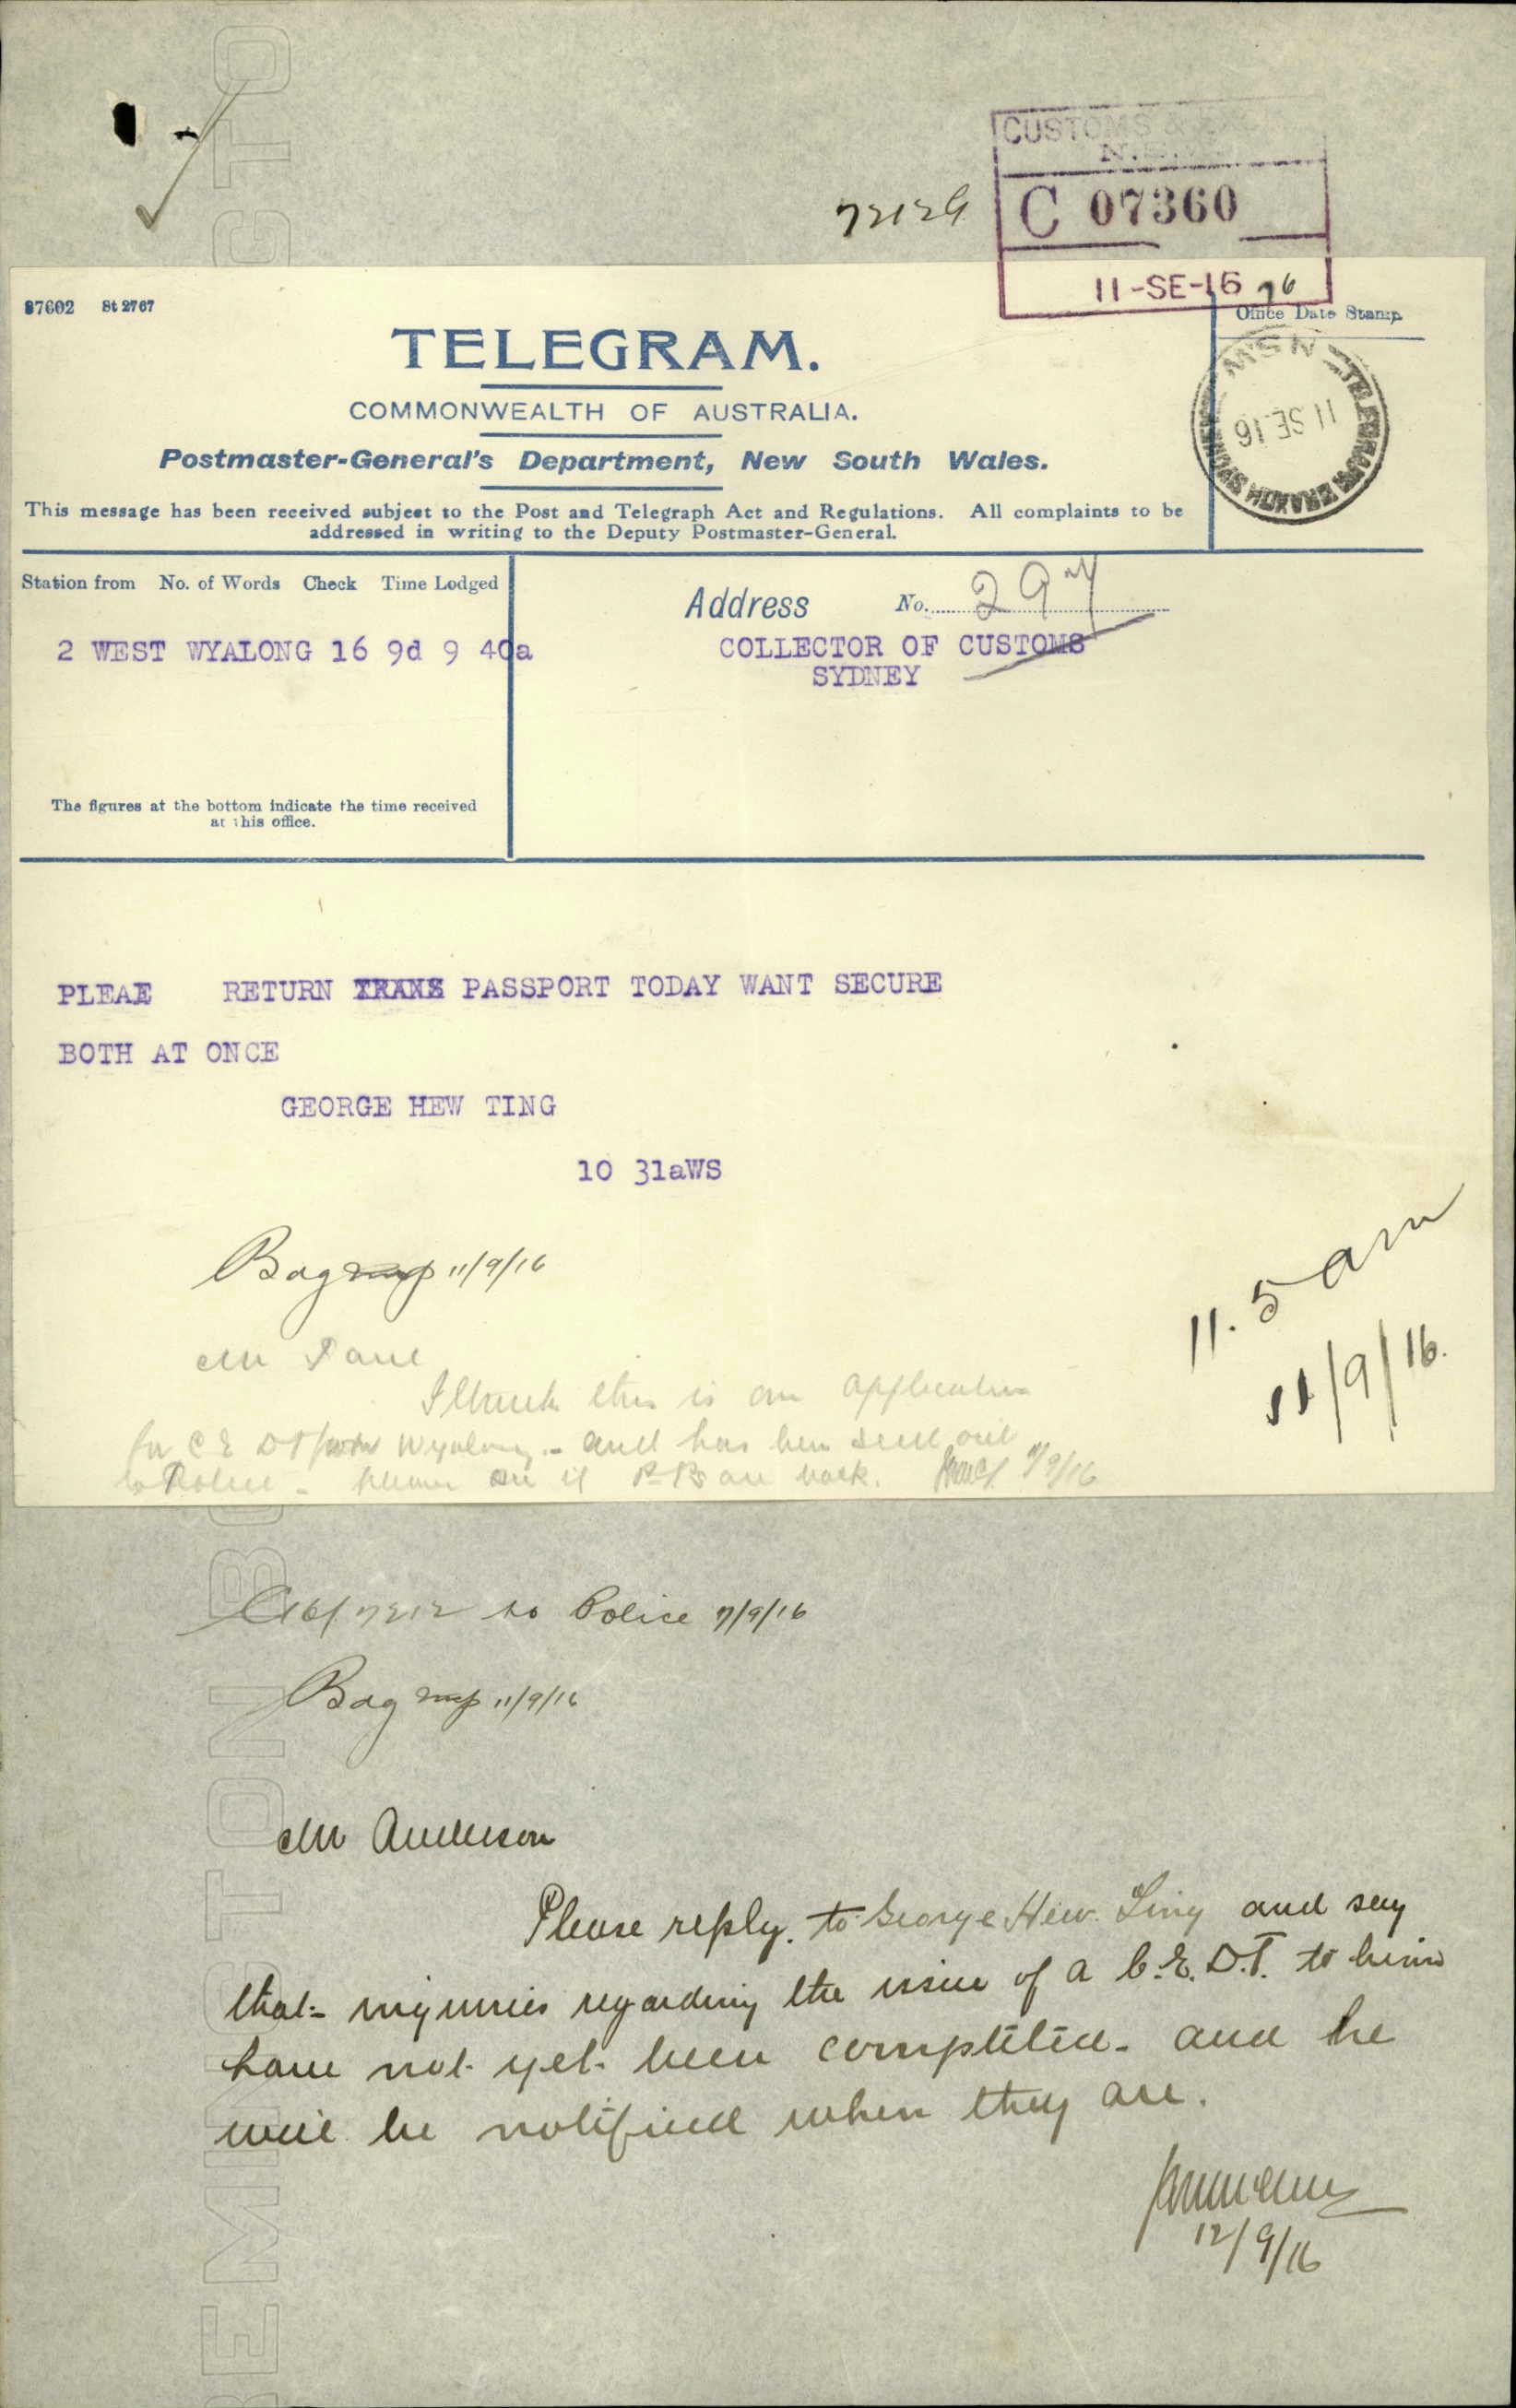 72129
CUSTOMS &
N.S.W.
C 07360
11-SE-16
37602 St 2767
Office Date Stamp
TELEGRAM.
COMMONWEALTH OF AUSTRALIA.
Postmaster-General's Department, New South Wales.
TELEGRAPH BRANCH SYDNEY N.S.W
11 SE 16
This message has been received subject to the Post and Telegraph Act and Regulations. All complaints to be
addressed in writing to the Deputy Postmaster-General.
Station from No. of Words Check Time Lodged
Address No. 297
2 WEST WYALONG 16 9d 9 40a
COLLECTOR OF CUSTOMS
SYDNEY
The figures at the bottom indicate the time received
at this office.
PLEAE RETURN TRANS PASSPORT TODAY WANT SECURE
BOTH AT ONCE
GEORGE HEW TING
10 31aWS
11/9/16
11.5 am
11/9/16.
Mr
I think this is an application
for C E D T from Wyalong - and has been sent out
to Police - please see if P-Ps are back. 11/9/16
C16/7212 to Police 7/9/16
11/9/16
Mr Anderson
Please reply to George Hew Ting and say
that inquiries regarding the issue of a C.E.D.T. to him
have not yet been completed - and he
will be notified when they are.
12/9/16
REMINGTON BOND